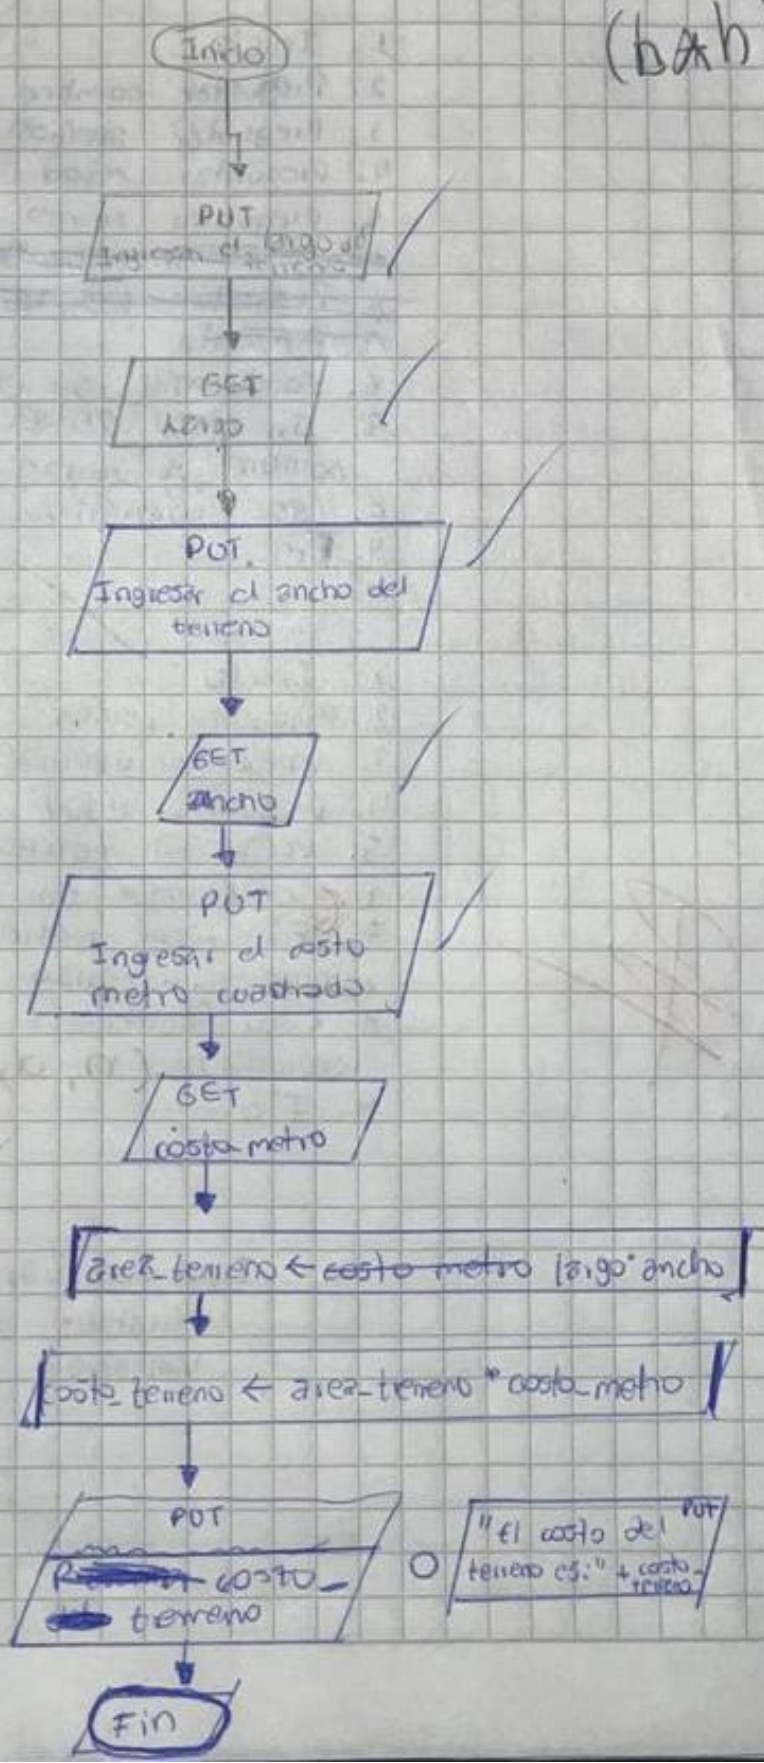 Inicio
(b*h
PUT
Ingresar el largo del
terreno
GET
Largo
PUT.
Ingresar el ancho del
terreno
GET
ancho
PUT
Ingesar el costo
metro cuadrado
GET
costo_metro
area_terreno ← costo metro largo*ancho
costo_terreno ← area_terreno * costo_metro
PUT
costo_
terreno
O
PUT
"El costo del
terreno es:" + costo_
terreno
Fin